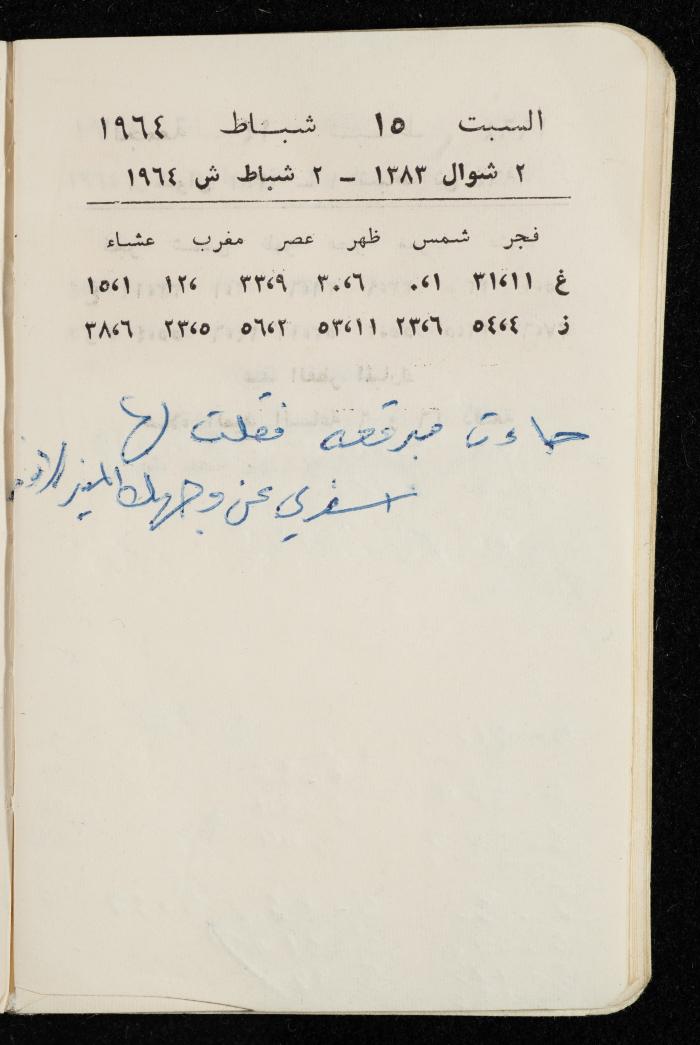 السبت ١٥ شباط ١٩٦٤
٢ شوال ١٣٨٣ – ٢ شباط ش ١٩٦٤
فجر شمس ظهر عصر مغرب عشاء
غ ٣١،١١ ٠،١ ٣٠،٦ ٣٣،٩ ١٢، ١٥،١
ز ٥٤،٤ ٢٣،٦ ٥٣،١١ ٥٦،٢ ٢٣،٥ ٣٨،٦
جاءت مبرقعه فقلت لها
اسفري عن وجهك المنير